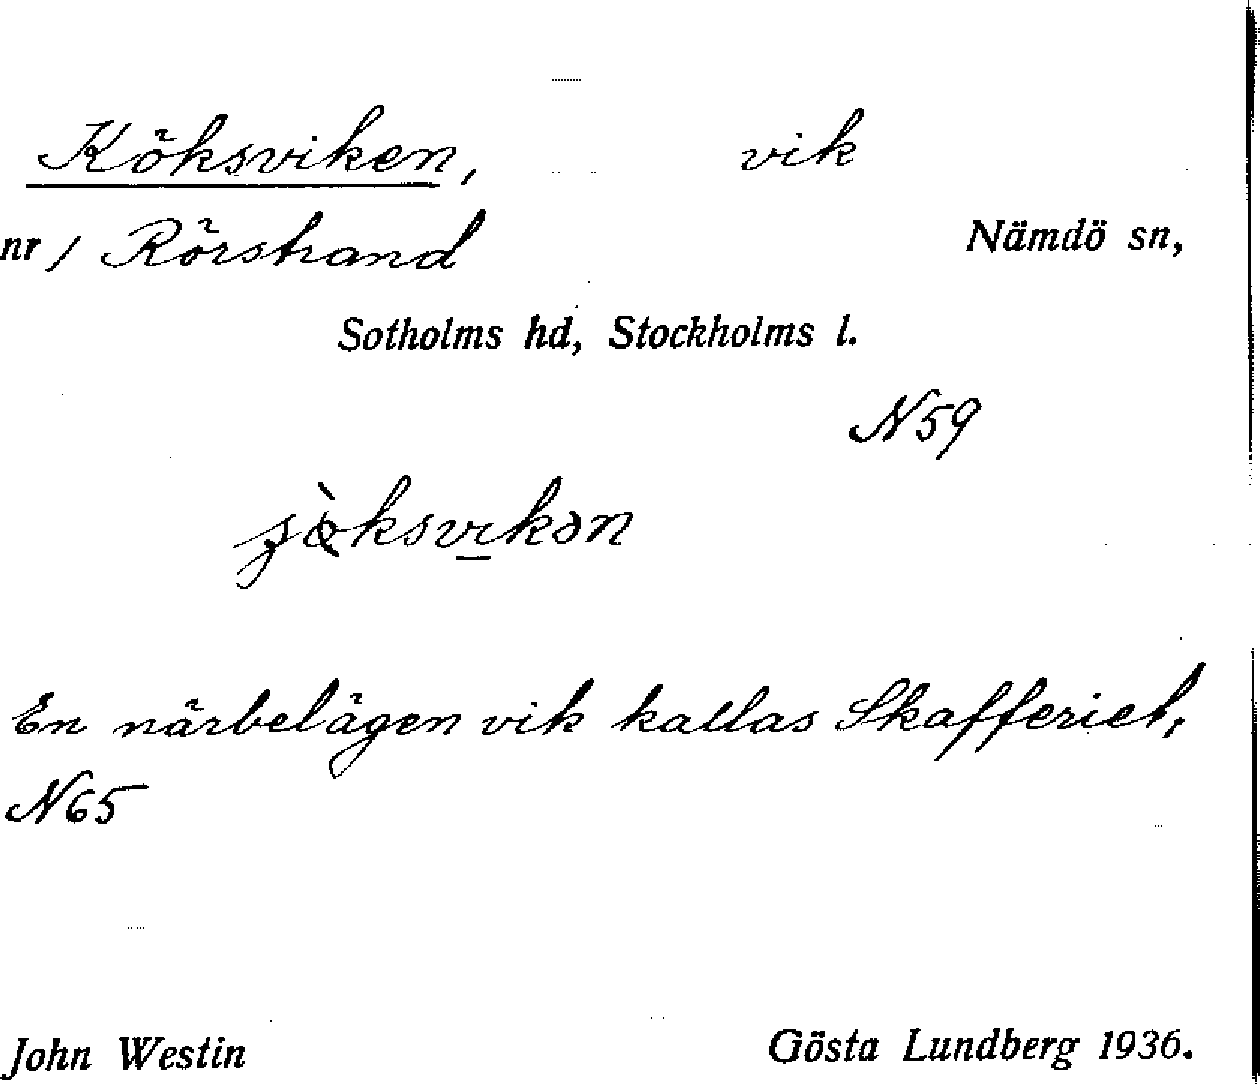 Köksviken, vik
nr / Rörstrand Nämdö sn,
Sotholms hd, Stockholms l.
N59
En närbelägen vik kallas Skafferiet,
N65
John Westin Gösta Lundberg 1936.